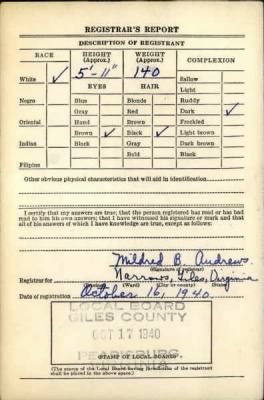 REGISTRAR'S REPORT
DESCRIPTION OF REGISTRANT
RACE HEIGHT (Approx.) WEIGHT (Approx.) COMPLEXION
White ✓ 5'-11" 140 Sallow
EYES HAIR Light
Negro Blue Blonde Ruddy
Gray Red Dark ✓
Oriental Hazel Brown Freckled
Brown ✓ Black ✓ Light brown
Indian Black Gray Dark brown
Bald Black
Filipino
Other obvious physical characteristics that will aid in identification
I certify that my answers are true; that the person registered has read or has had
read to him his own answers; that I have witnessed his signature or mark and that
all of his answers of which I have knowledge are true, except as follows:
Mildred B. Andrews
(Signature of registrar)
Registrar for Narrows, Giles, Virginia
(Precinct) (Ward) (City or county)
Date of registration October 16, 1940
LOCAL BOARD
GILES COUNTY
OCT 17 1940
PEARISBURG
VIRGINIA
(STAMP OF LOCAL BOARD)
(The stamp of the Local Board having jurisdiction of the registrant
shall be placed in the above space.)